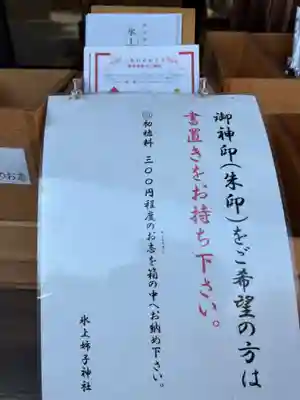 御神印(朱印)をご希望の方は
書置きをお持ち下さい。
初穂料 三〇〇円程度のお志を箱の中へお納め下さい。
氷上姉子神社
氷上
のお志